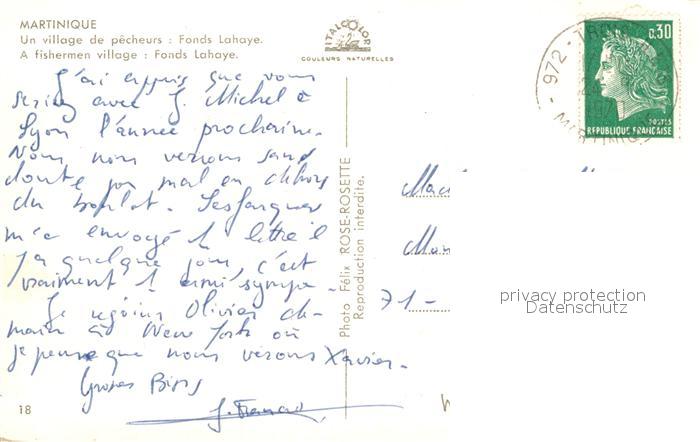 MARTINIQUE
Un village de pêcheurs : Fonds Lahaye.
A fishermen village : Fonds Lahaye.
ITALCOLOR
COULEURS NATURELLES
J'ai appris que vous
seriez avec J. Michel à
Lyon l'année prochaine.
Nous nous verrons sans
doute pas mal en dehors
du boulot.
m'a envoyé 1 lettre il
y a quelque jours, c'est
vraiment 1 ami sympa.
Je rejoins Olivier de-
main à New York où
je pense que nous verrons Xavier.
Grosses Bises
18
Photo Félix ROSE-ROSETTE
Reproduction interdite.
972
0,30
POSTES
REPUBLIQUE FRANÇAISE
71-
privacy protection
Datenschutz